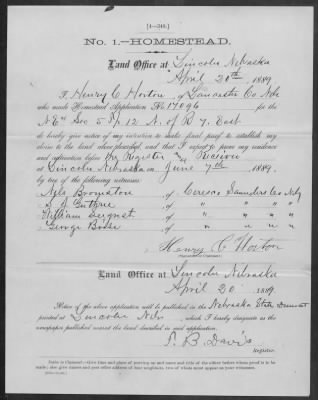 [4—348.]
No. 1.—HOMESTEAD.
Land Office at Lincoln Nebraska
April 20th, 1889.
I, Henry C Horton, of Lancaster Co Neb
who made Homestead Application No. 17096 for the
N.E¼ Sec 5 Tp 12 N. of R 7 East
do hereby give notice of my intention to make final proof to establish my
claim to the land above described, and that I expect to prove my residence
and cultivation before the Register and Receiver
at Lincoln Nebraska on June 7th, 1889,
by two of the following witnesses:
Nyls, of Ceresco Saunders Co Neb
Guthrie, of " " "
William, of " " "
George, of " " "
Henry C Horton
(Signature of Claimant.)
Land Office at Lincoln Nebraska
April 20, 1889.
Notice of the above application will be published in the Nebraska State
printed at Lincoln Neb, which I hereby designate as the
newspaper published nearest the land described in said application.
S. B. Davis
Register.
Notice to Claimant.—Give time and place of proving up and name and title of the officer before whom proof is to be
made; also give names and post office address of four neighbors, two of whom must appear as your witnesses.